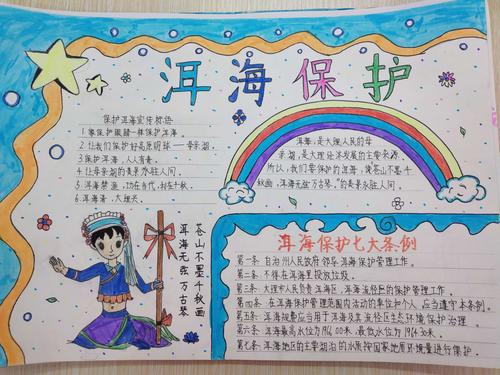 洱海保护
保护洱海宣传标语
1.象保护眼睛一样保护洱海。
2.让我们保护好高原明球——母亲湖。
3.保护洱海,人人有责。
4.让母亲湖的美景永驻人间。
5.洱海禁渔,功在当代,利在千秋。
6.洱海清,大理兴。
洱海,是大理人民的母
亲湖,是大理经济发展的主要来源。
所以,我们要保护的洱海,使苍山不墨千
秋画,洱海无弦万古琴。"的美景永驻人间。
苍山不墨千秋画
洱海无弦万古琴
洱海保护七大条例
第一条 自治州人民政府领导洱海保护管理工作。
第二条 不得在洱海里投放垃圾。
第三条 大理市人民负责洱海区,洱海流径区的保护管理工作。
第四条 在洱海保护管理范围内活动的单位和个人,应当遵守本条例。
第五条 洱海规费应当用于洱海及其流径区生态环境保护治理。
第六条 洱海最高水位为1966.00米,最低水位为1964.30米。
第七条 洱海地区的主要湖泊的水质按国家地质环境量进行保护。